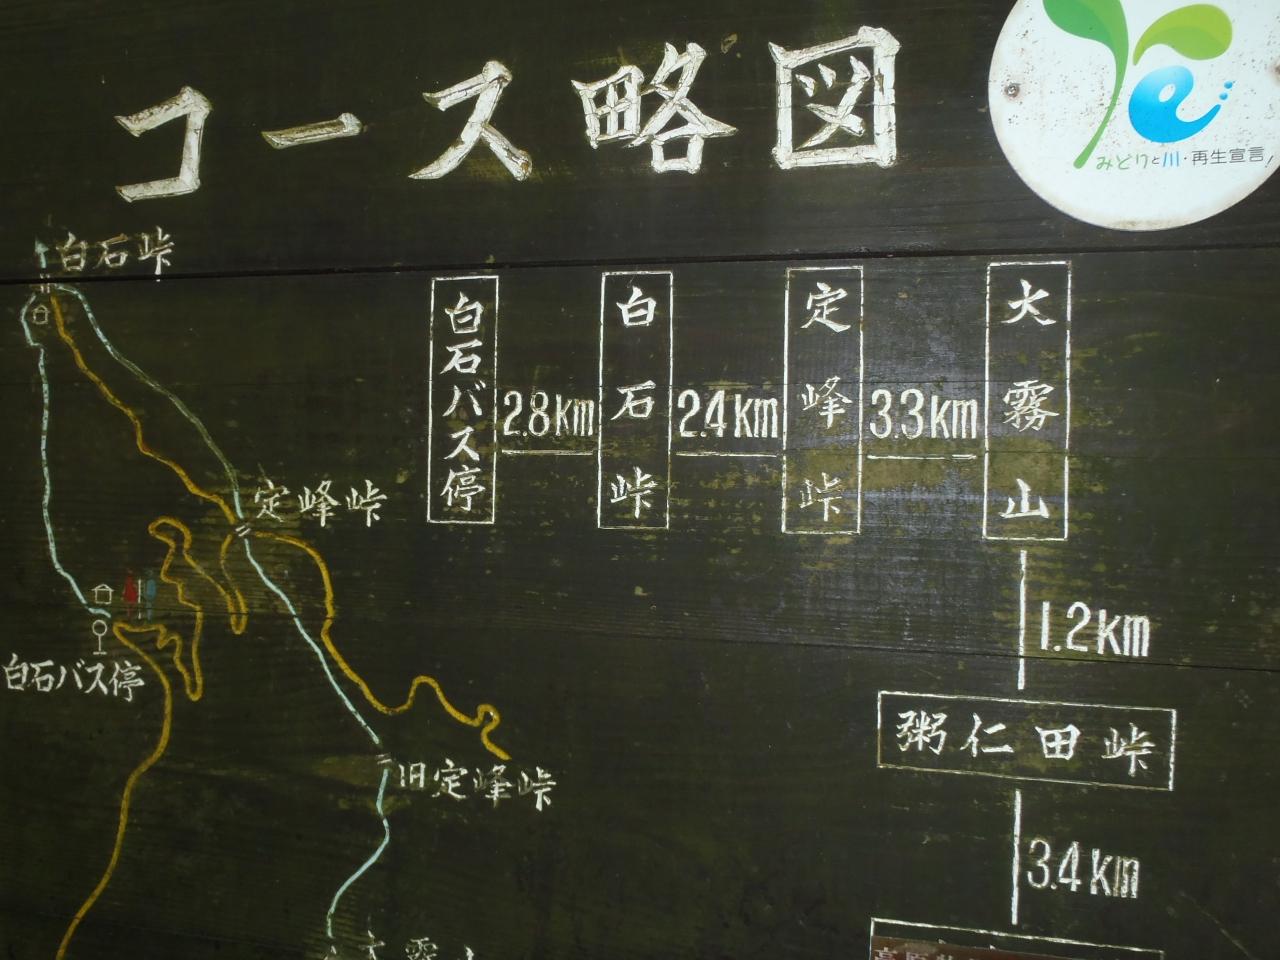 コース略図
みどりと川・再生宣言!
白石峠
白石バス停
2.8km
白石峠
2.4km
定峰峠
3.3km
大霧山
定峰峠
1.2km
白石バス停
粥仁田峠
旧定峰峠
3.4km